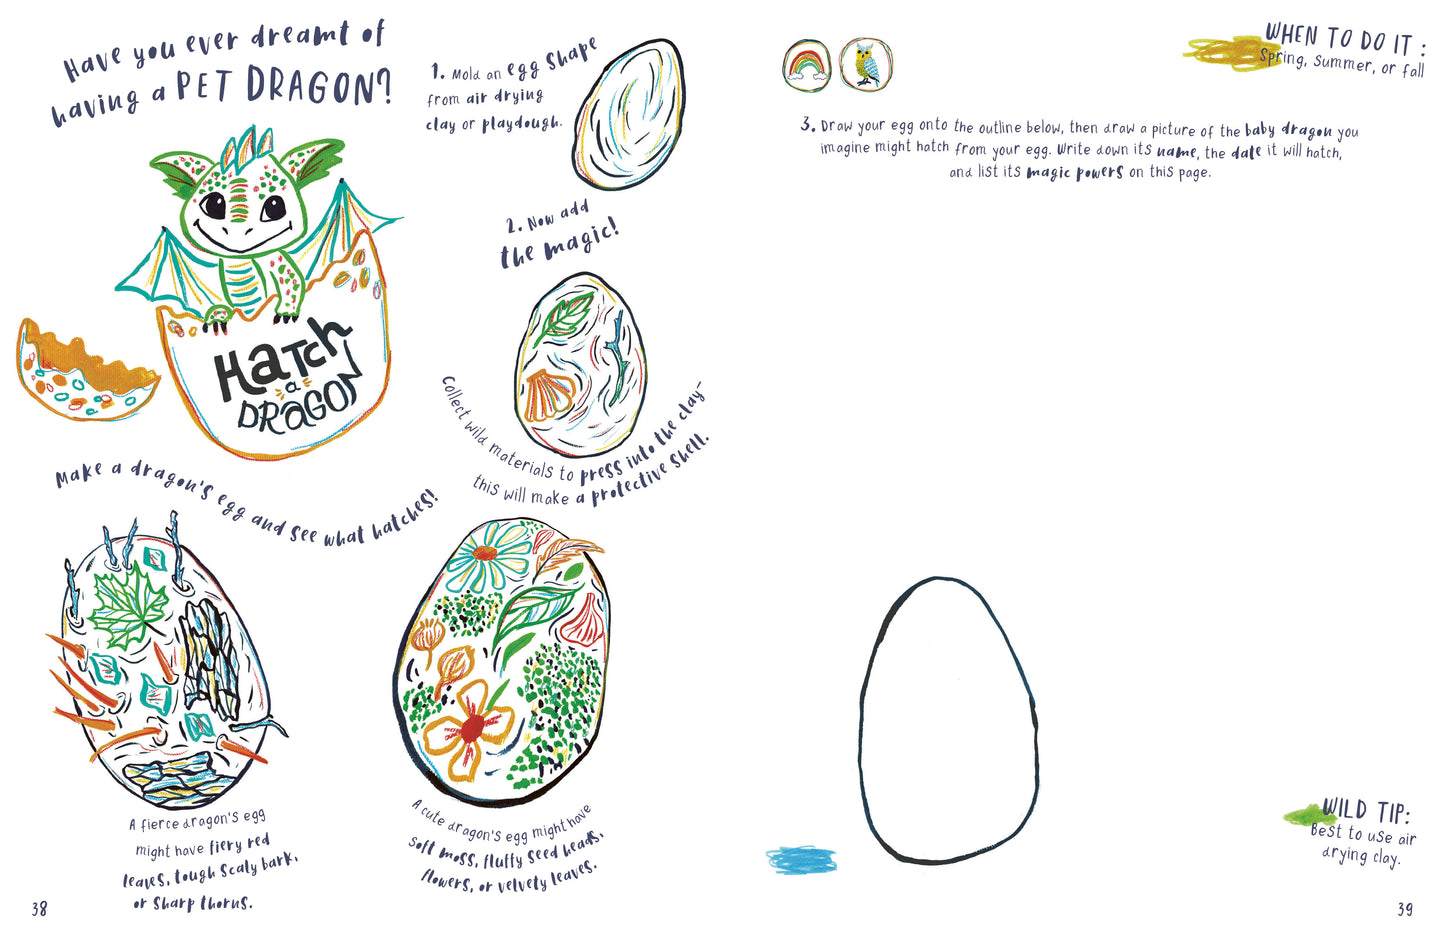 Have you ever dreamt of
having a PET DRAGON?
Hatch
a
DRAGON
Make a dragon's egg and see what hatches!
1. Mold an egg shape
from air drying
clay or playdough.
2. Now add
the magic!
Collect wild materials to press into the clay–
this will make a protective shell.
A fierce dragon's egg
might have fiery red
leaves, tough scaly bark,
or sharp thorns.
A cute dragon's egg might have
soft moss, fluffy seed heads,
flowers, or velvety leaves.
38
WHEN TO DO IT :
Spring, Summer, or fall
3. Draw your egg onto the outline below, then draw a picture of the baby dragon you
imagine might hatch from your egg. Write down its name, the date it will hatch,
and list its magic powers on this page.
WILD TIP:
Best to use air
drying clay.
39